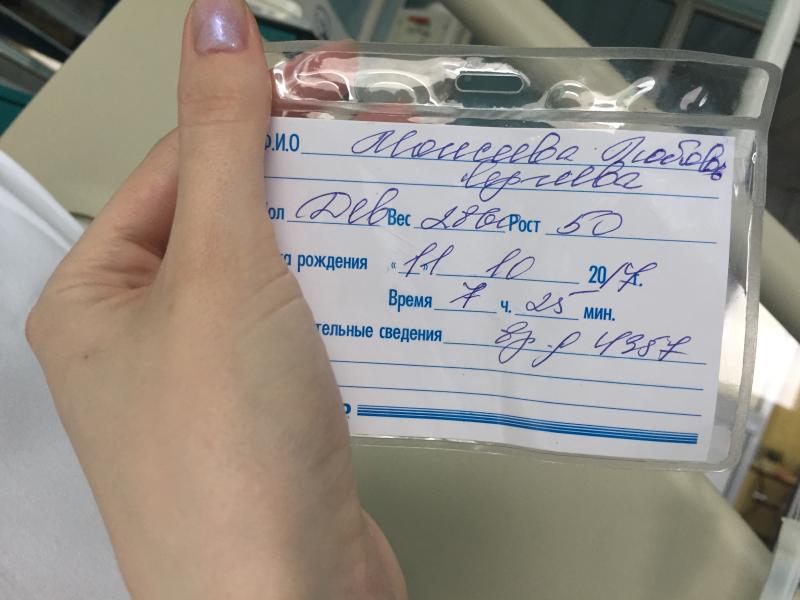 Ф.И.О Моисеева Любовь
Сергеевна
ол Дев Вес 2860 Рост 50
а рождения «11» 10 2017г.
Время 7 ч. 25 мин.
тельные сведения 4357